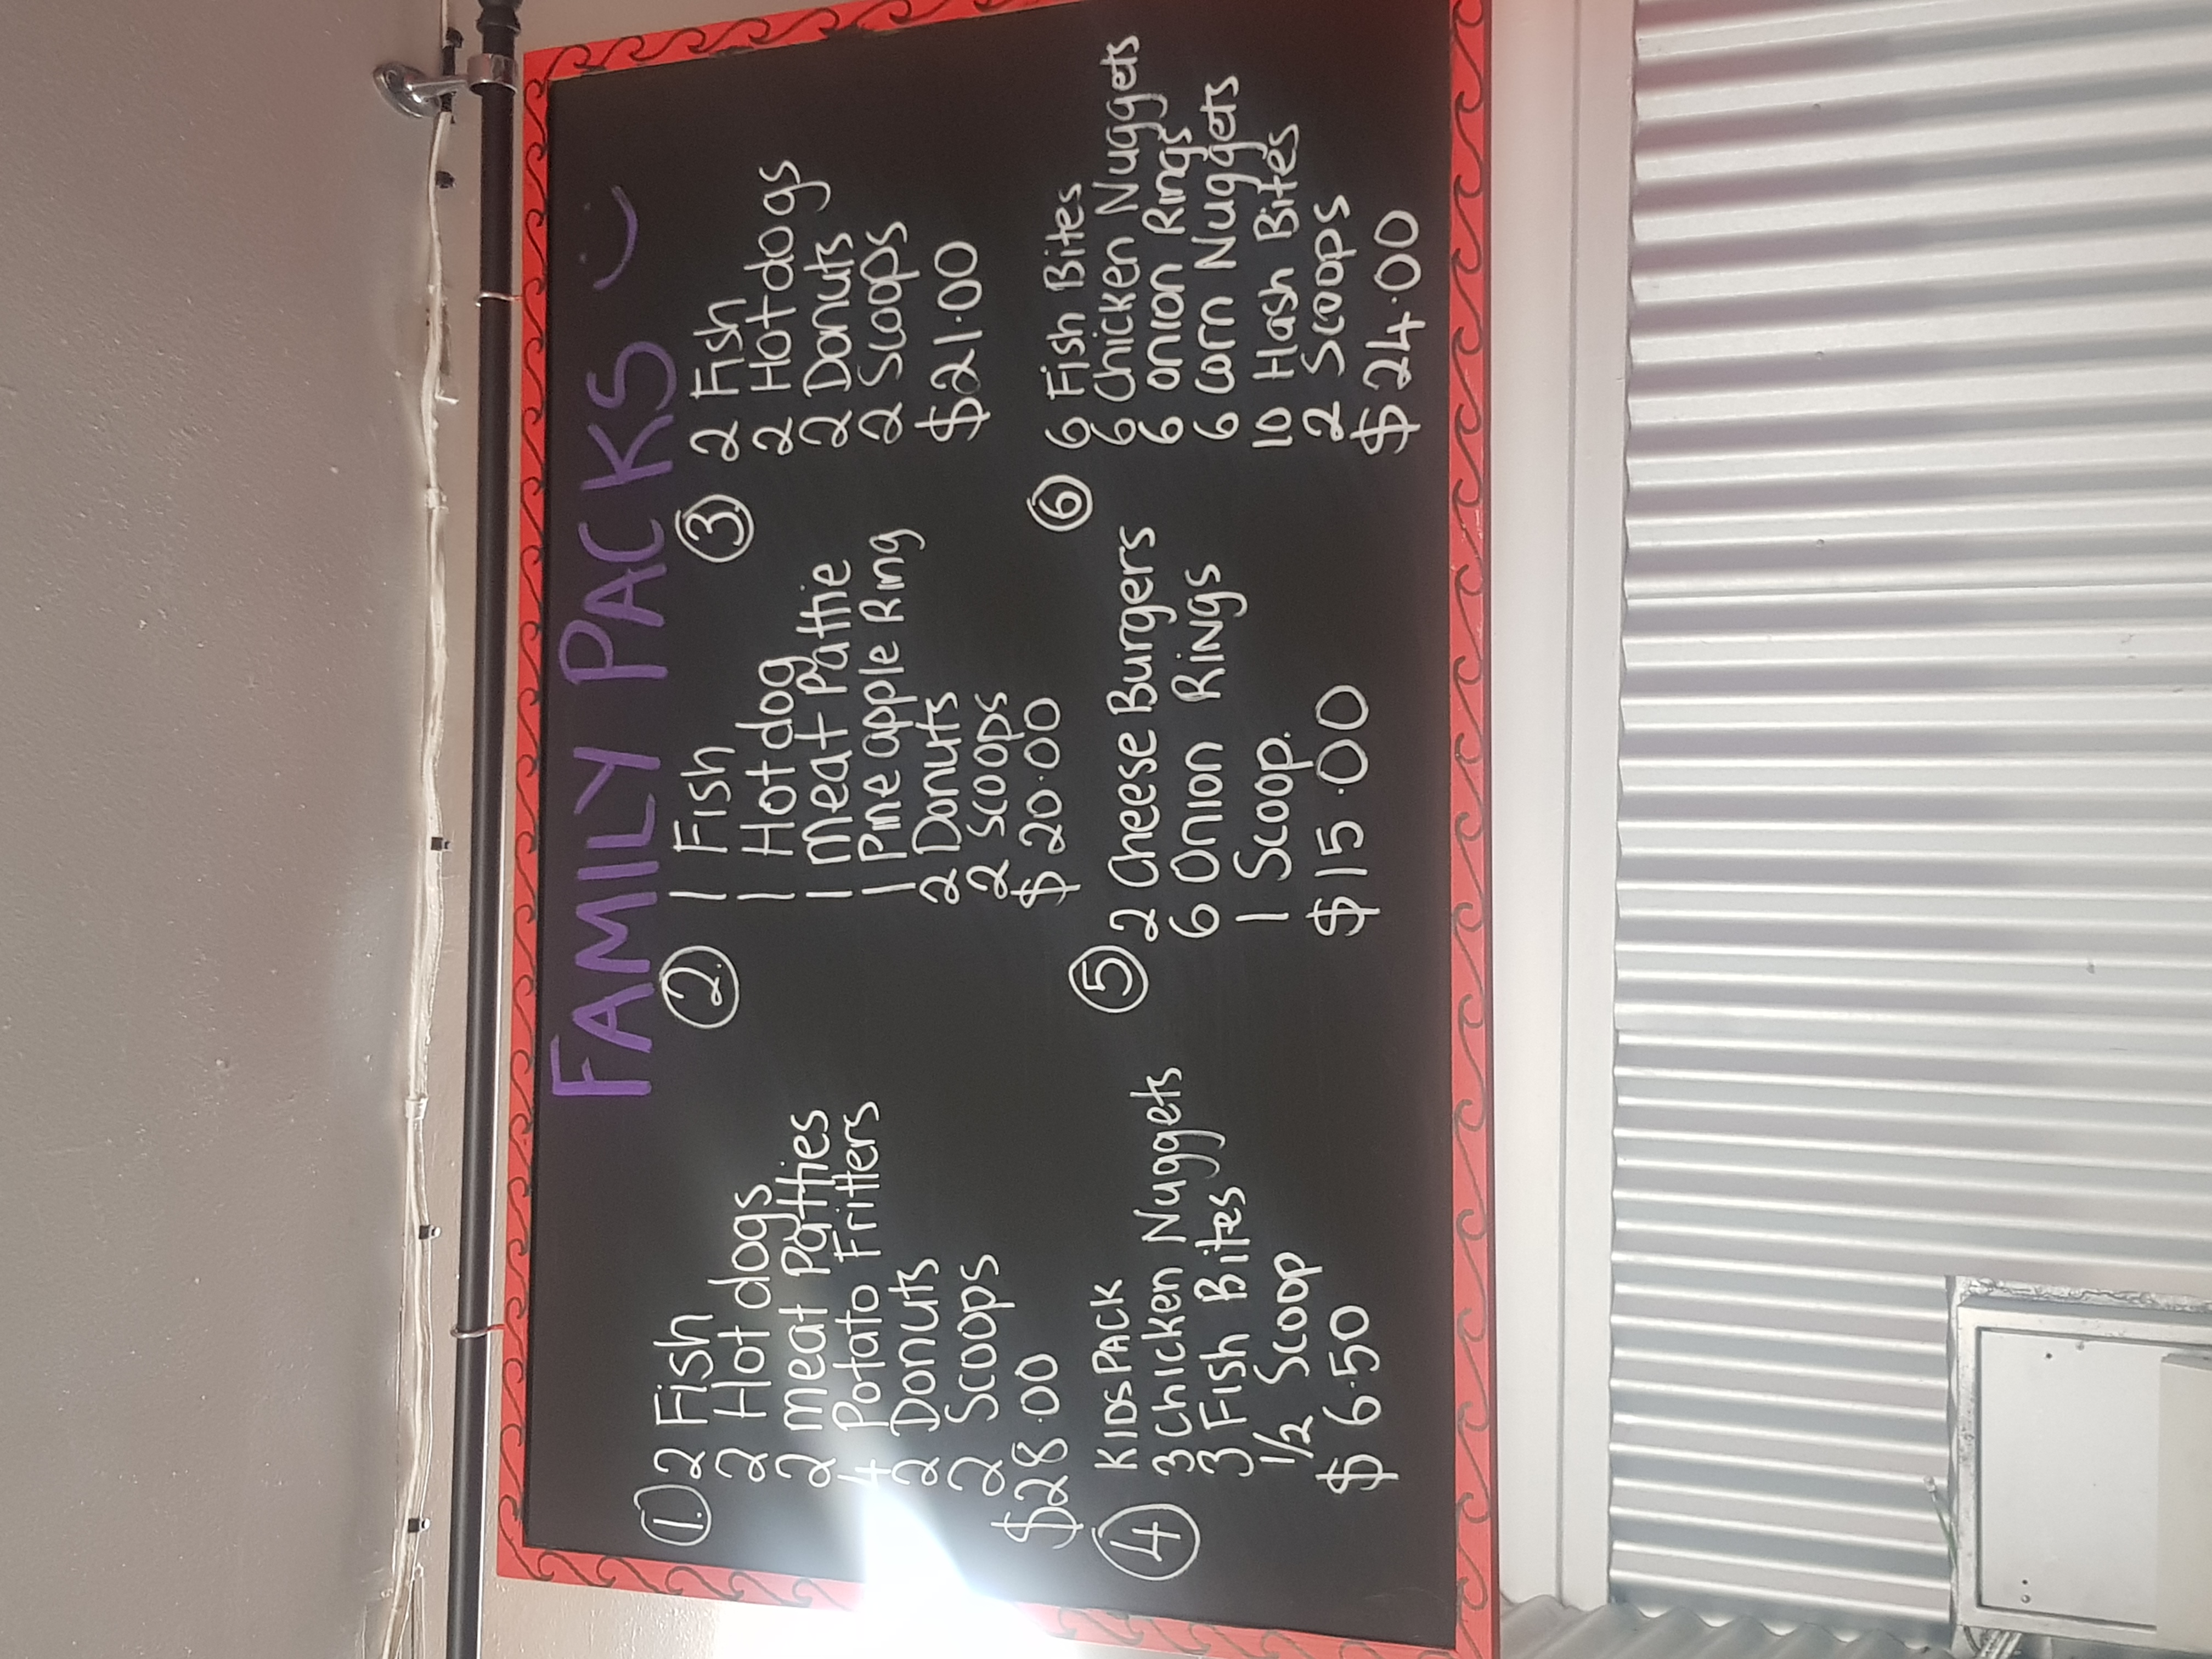 FAMILY PACKS :)
1. 2 Fish
2 Hot dogs
2 meat Patties
4 Potato Fritters
2 Donuts
2 Scoops
$28.00
2. 1 Fish
1 Hot dog
1 meat Pattie
1 Pineapple Ring
2 Donuts
2 Scoops
$20.00
3. 2 Fish
2 Hot dogs
2 Donuts
2 Scoops
$21.00
4 KIDS PACK
3 Chicken Nuggets
3 Fish Bites
1/2 Scoop
$6.50
5 2 Cheese Burgers
6 Onion Rings
1 Scoop.
$15.00
6 6 Fish Bites
6 Chicken Nuggets
6 onion Rings
6 Corn Nuggets
10 Hash Bites
2 Scoops
$24.00